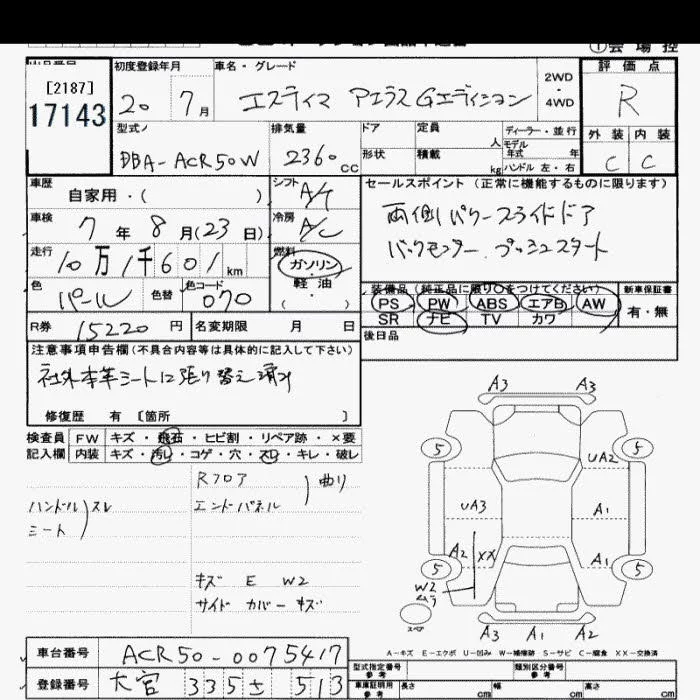 ①会場控
[2187]
17143
初度登録年月
20年 7月
車名・グレード
エスティマ アエラスGエディション
2WD
・
4WD
評価点
R
外装 内装
C C
型式ノ
DBA-ACR50W
排気量
2360cc
ドア
形状
定員 人
積載 kg
ディーラー・並行
モデル年式 年
ハンドル 左・右
車歴
自家用・( )
シフト A/T
車検
7年 8月(23日)
冷房 A/C
走行
10万1千601km
燃料
ガソリン・軽油・( )
色 パール
色替
色コード 070
R券 15220円
名変期限 月 日
セールスポイント (正常に機能するものに限ります)
両側パワースライドドア
バックモニター、プッシュスタート
装備品 (純正品に限り○をつけてください)
PS PW ABS エアB AW
SR ナビ TV カワ
新車保証書
有・無
後日品
注意事項申告欄(不具合内容等は具体的に記入して下さい)
社外本革シートに張り替え済み
修復歴 有 〔箇所 〕
検査員
記入欄
FW キズ・飛石・ヒビ割・リペア跡・×要
内装 キズ・汚レ・コゲ・穴・スレ・キレ・破レ
ハンドル
シート
スレ
Rフロア
エンドパネル
曲り
キズ E W2
サイドカバーキズ
A3 A3
5 5
UA2
UA3 A1
A2 XX A1
5 5
W2
ムラ
スペア
A3 A1 A2
A-キズ E-エクボ U-凹み W-補修跡 S-サビ C-腐食 XX-交換済
車台番号 ACR50-0075417
登録番号 大宮 335 さ 513
型式指定番号
参考
類別区分番号
参考
車庫証明用
参考
長さ cm
幅 cm
高さ cm